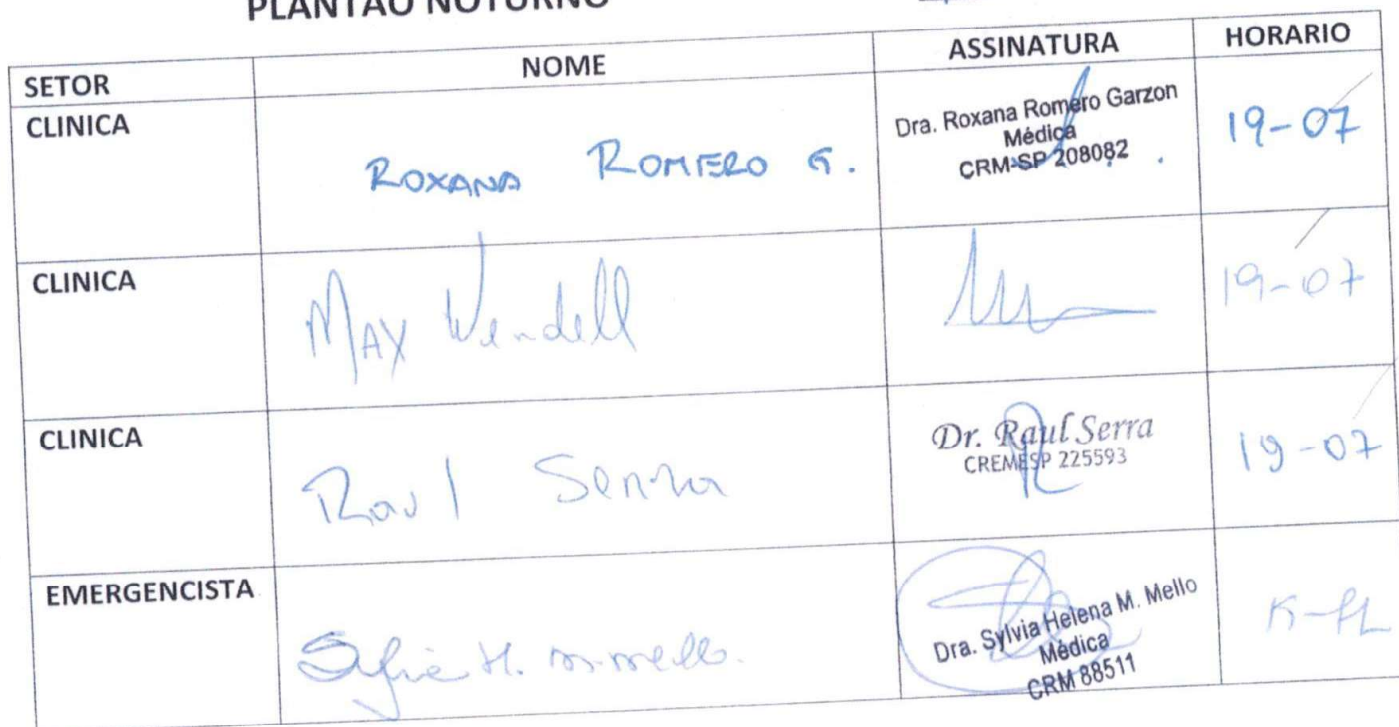 PLANTAO NOTURNO
SETOR NOME ASSINATURA HORARIO
CLINICA
ROXANA ROMERO G.
Dra. Roxana Romero Garzon
Médica
CRM-SP 208082
19-07
CLINICA
MAX Wendell
19-07
CLINICA
Raul Serra
Dr. Raul Serra
CREMESP 225593
19-07
EMERGENCISTA
Sylvia H. M. Mello.
Dra. Sylvia Helena M. Mello
Médica
CRM 88511